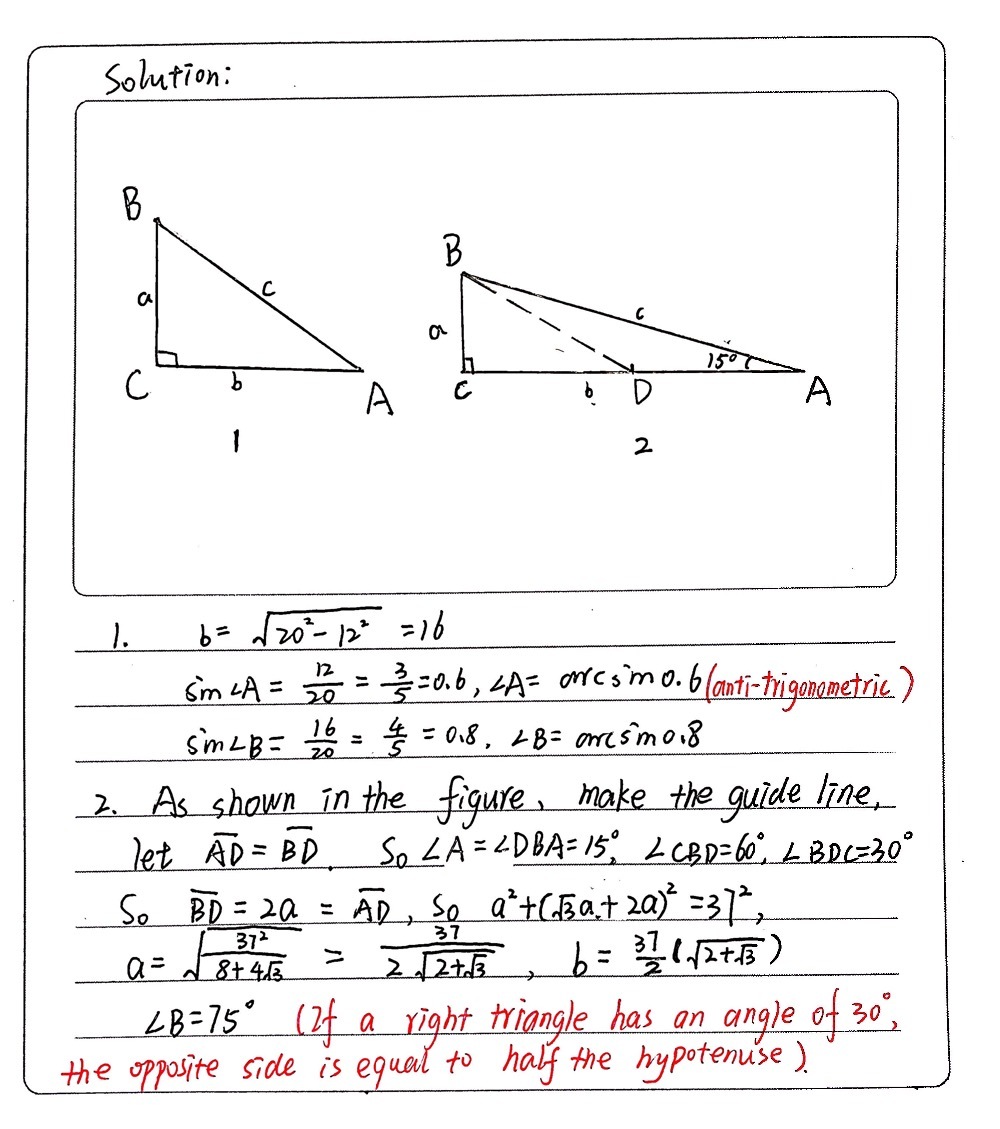 Solution:
B
a
c
C
b
A
1
B
a
c
15°
C
b
D
A
2
1. b = √(20² - 12²) = 16
sin∠A = 12/20 = 3/5 = 0.6, ∠A = arcsin 0.6 (anti-trigonometric)
sin∠B = 16/20 = 4/5 = 0.8, ∠B = arcsin 0.8
2. As shown in the figure, make the guide line,
let A̅D̅ = B̅D̅. So ∠A = ∠DBA = 15°, ∠CBD = 60°, ∠BDC = 30°
So B̅D̅ = 2a = A̅D̅, So a² + (√3a + 2a)² = 37²,
a = √(37²/(8+4√3)) = 37/(2√(2+√3)), b = 37/2 (√(2+√3))
∠B = 75° (If a right triangle has an angle of 30°,
the opposite side is equal to half the hypotenuse).